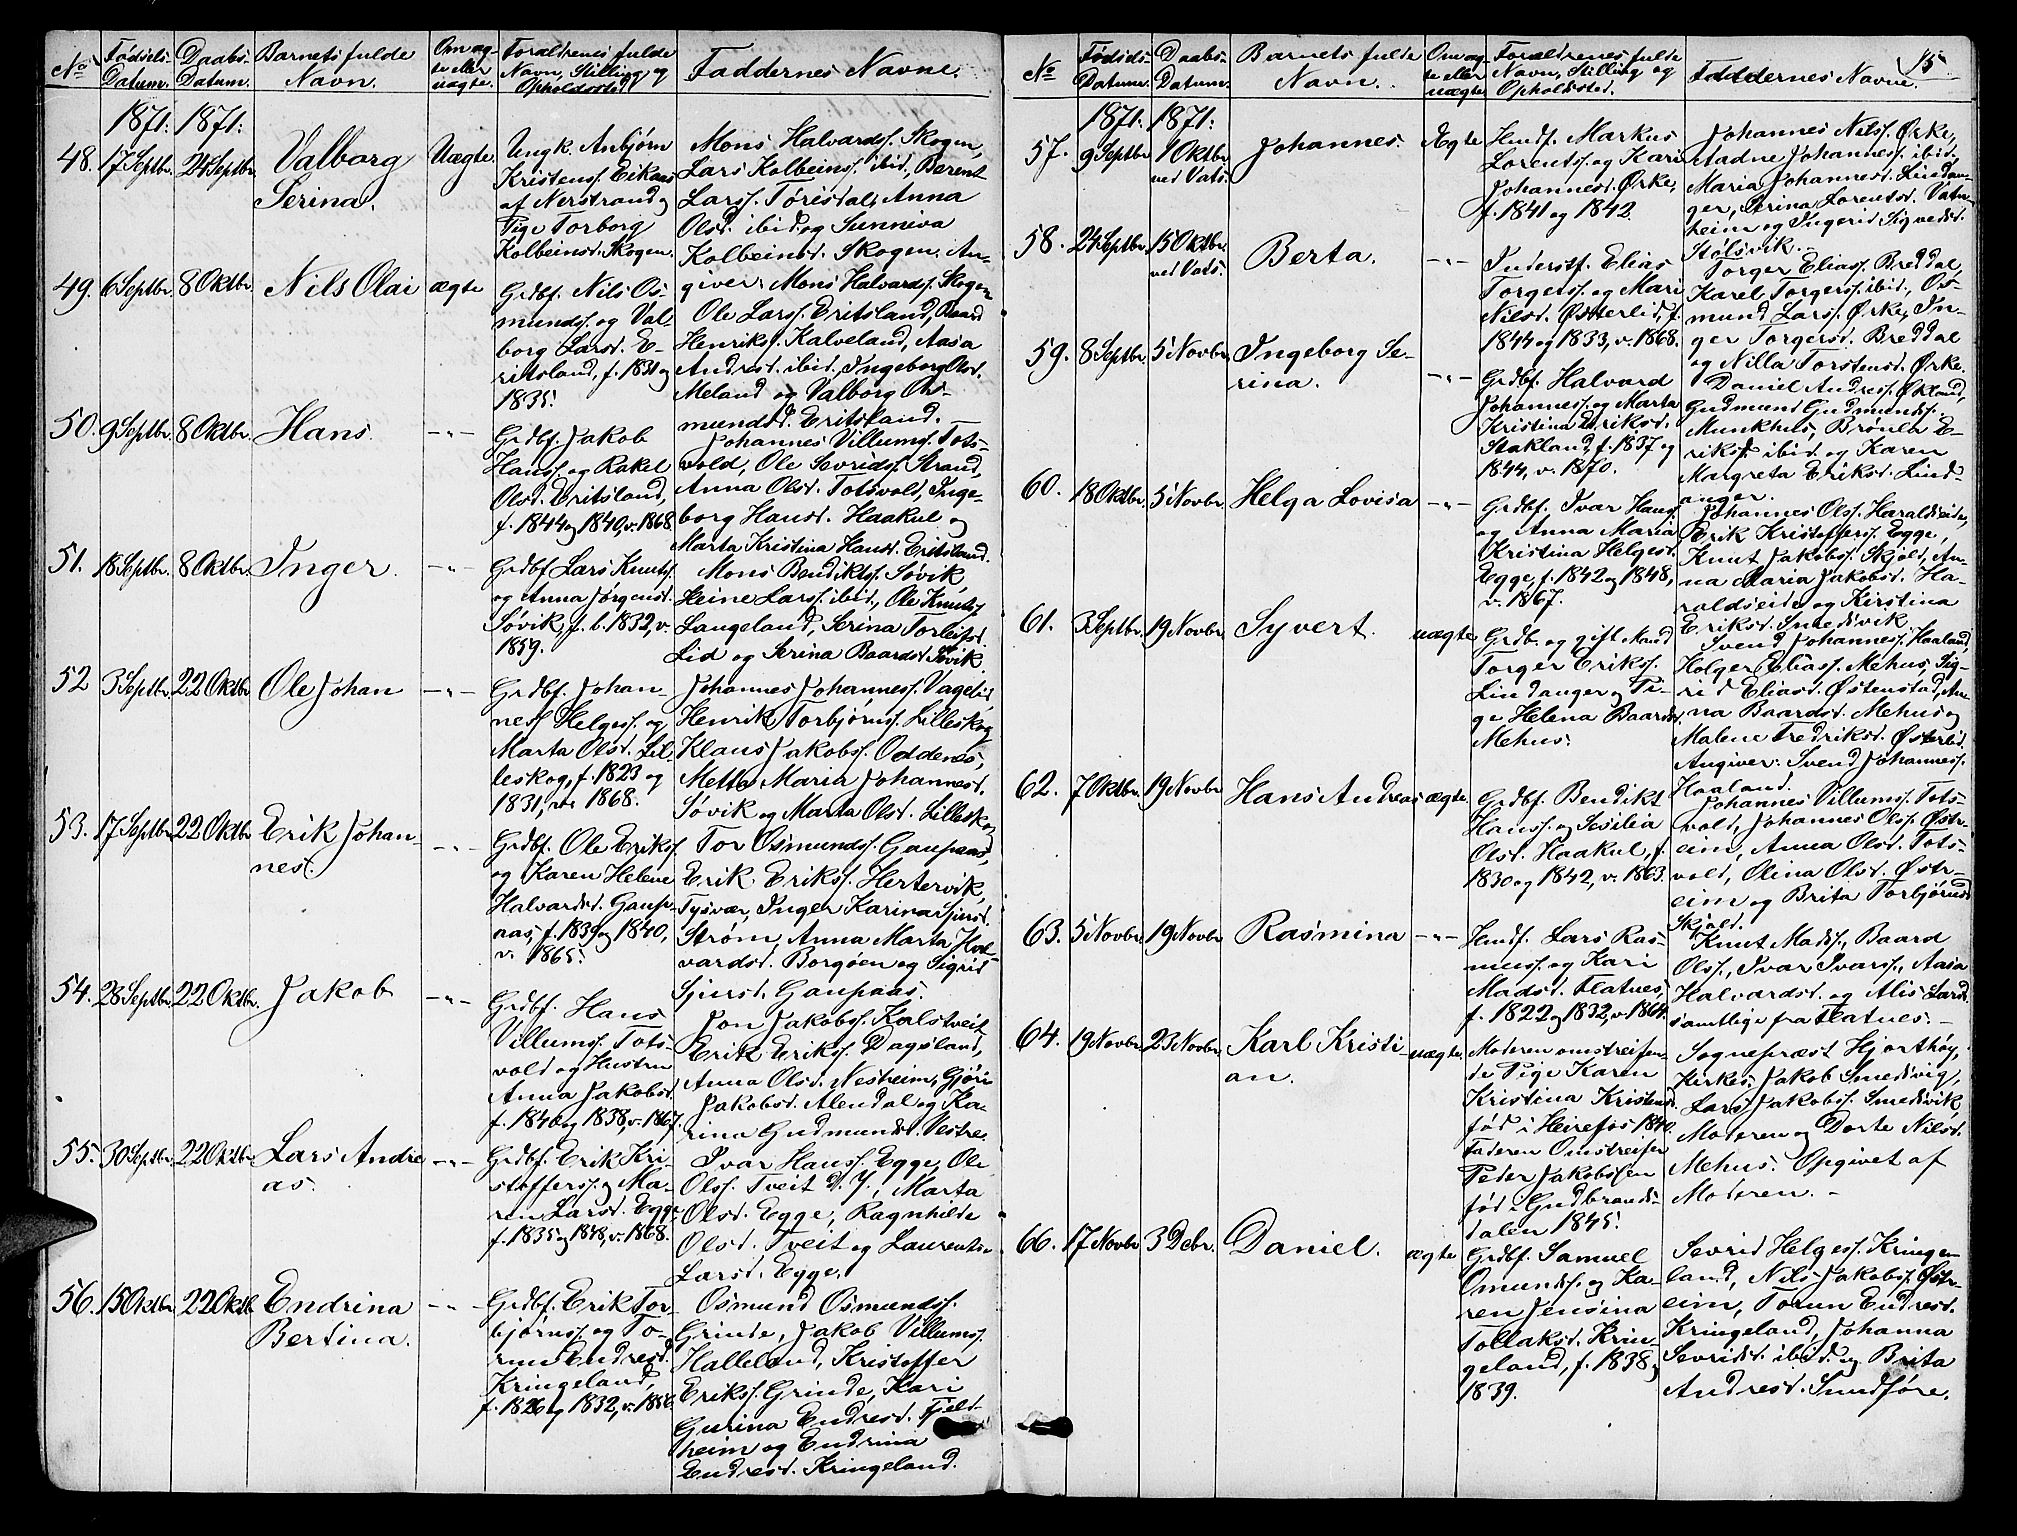 No
Fødsels-
Datum.
Daabs-
Datum.
Barnets fulde
Navn.
Om æg-
te eller
uægte.
Forældrenes fulde
Navn, Stilling og
Opholdssted.
Faddernes Navne.
1871: 1871:
48. 17 Septbr. 24 Septbr. Valborg
Serina.
Uægte.
Ungk. Anbjørn
Kristenss. Eikaas
af Nerstrand og
Pige Torborg
Kolbeinsd. Skogen.
Mons Halvardss. Skogen,
Lars Kolbeinss. ibid., Berent
Larss. Tørisdal, Anna
Olsd. ibid og Sunniva
Kolbeinsd. Skogen. An-
giver: Mons Halvardss. Skogen
49. 6 Septbr. 8 Oktbr. Nils Olai ægte
Grdbf. Nils Os-
mundss. og Val-
borg Larsd. E-
ritsland, f. 1831 og
1835.
Ole Larss. Eritsland, Baard
Henrikss. Kalveland, Aasa
Andresd. ibid., Ingeborg Olsd.
Meland og Valborg Os-
mundsd. Eritsland.
50. 9 Septbr. 8 Oktbr. Hans. -"-
Grdbf. Jakob
Hanss. og Rakel
Olsd. Eritsland,
f. 1844 og 1840, v. 1868.
Johannes Villumss. Tots-
vold, Ole Sevridss. Strand,
Anna Olsd. Totsvold, Inge-
borg Hansd. Haakul og
Marta Kristina Hansd. Eritsland.
51. 18 Septbr. 8 Oktbr. Inger. -"-
Grdbf Lars Knutss.
og Anna Jørgensd.
Søvik, f. b. 1832, v.
1859.
Mons Bendikss. Søvik
Heine Larss. ibid., Ole Knutss.
Langeland, Serina Torleifsd.
Lid og Serina Baardsd. Søvik
52 3 Septbr. 22 Oktbr. Ole Johan -"-
Grdbf. Johan-
nes Helgess. og
Marta Olsd. Lil-
leskog, f. 1823 og
1831, v. 1868.
Johannes Johanness. Vagelid
Henrik Torbjørnss. Lilleskog
Klaus Jakobss. Oddenes,
Mette Maria Johannesd.
Søvik og Marta Olsd. Lilleskog
53. 17 Septbr. 22 Oktbr. Erik Johan-
nes.
-"-
Grdbf. Ole Erikss.
og Karen Helene
Halvardsd. Gaup-
aas, f. 1839 og 1840,
v. 1865.
Tor Osmundss. Gaupaas,
Erik Erikss. Hertervik,
Tysvær, Inger Karina Sjursd.
Strøm, Anna Marta Hal-
vardsd. Borgøen og Sigrid
Sjursd. Gaupaas.
54. 28 Septbr. 22 Oktbr. Jakob -"-
Grdbf. Hans
Villumss. Tots-
vold og Hustru
Anna Jakobsd.
f. 1840 og 1838, v. 1867.
Jon Jakobss. Kalstveit
Erik Erikss. Dagsland,
Anna Olsd. Nesheim, Gjøri
Jakobsd. Alendal og Ka-
rina Gudmundsd. Vestre.
55. 30 Septbr. 22 Oktbr. Lars Andre
as.
-"-
Grdbf. Erik Kri-
stofferss. og Ma-
ren Larsd. Egge,
f. 1835 og 1848, v. 1868.
Ivar Hanss. Egge, Ole
Olss. Tveit d. Y., Marta
Olsd. Egge, Ragnhilde
Olsd. Tveit og Laurentse
Larsd. Egge.
56. 15 Oktbr. 22 Oktb. Endrina
Bertina.
-"-
Grdbf. Erik Tor-
bjørnss. og To-
run Endresd.
Kringeland,
f. 1826 og 1832, v. 1856
Osmund Osmundss.
Grinde, Jakob Villumss.
Halleland, Kristoffer
Erikss. Grinde, Kari
Gurina Endresd. Fjeld-
heim og Endrina
Endresd. Kringeland.
15.
No
Fødsels-
Datum.
Daabs-
Datum.
Barnets fulde
Navn.
Om æg-
te eller
uægte
Forældrenes fulde
Navn, Stilling og
Opholdssted.
Faddernes Navne.
1871: 1871:
57. 9 Septbr. 1 Oktbr.
ved Vats.
Johannes. Ægte
Husmf. Markus
Lorentss. og Kari
Johannesd. Ørke,
f. 1841 og 1842.
Johannes Nilss. Ørke,
stadne Johanness. ibid.,
Maria Johannesd. Lindan-
ger, Brina Lorentsd. Vatn-
heim og Ingerid Sigvedsd.
Stølsvik.
58. 24 Septbr. 15 Oktbr.
ved Vats.
Berta. -"-
Inderstf. Elias
Torgerss. og Mari
Nilsd. Østerlid, f.
1844 og 1833, v. 1868.
Torger Eliass. Breddal,
Karel Torgerss. ibid., Os-
mund Larss. Ørke, In-
ger Torgersd. Breddal
og Nilla Torstensd. Ørke.
59. 8 Septbr. 5 Novbr. Ingeborg Se-
rina.
-"-
Grdbf. Halvard
Johanness. og Marta
Kristina Eriksd.
Stakland, f. 1837 og
1844, v. 1870.
Daniel Andress. Økland,
Gudmund Gudmundss.
Munkhus, Brønla E-
riksd. ibid og Karen
Margreta Eriksd. Lind-
anger.
60. 18 Oktbr. 5 Novbr. Helga Lovisa -"-
Grdbf. Ivar Hanss.
og Anna Maria
Kristina Helgesd.
Egge, f. 1842 og 1848,
v. 1867.
Johannes Olss. Haraldseide,
Erik Kristofferss. Egge,
Knut Jakobss. Skjold, An-
na Maria Jakobsd. Ha-
raldseide og Kirstina
Eriksd. Smedsvik.
61. 3 Septbr. 19 Novbr. Syvert. uægte
Grdb. og gift Mand
Torger Erikss.
Lindanger og Pi-
ge Helena Baardsd.
Mehus.
Svend Johanness. Haaland,
Holger Eliass. Mehus, Sig-
rid Eliasd. Østenstad, An-
na Baardsd. Mehus og
Malene Fredriksd. Østerlid.
Angiver: Svend Johanness.
Haaland.
62. 7 Oktbr. 19 Novbr. Hans Andreas ægte.
Grdbf. Bendikt
Hanss. og Sesilia
Olsd. Haakul, f.
1830 og 1842, v. 1863.
Johannes Villumss. Tots-
vold, Johannes Olss. Østr-
eim, Anna Olsd. Tots-
vold, Oina Olsd. Østr-
eim og Brita Torbjørnsd
Skjold.
63. 5 Novbr. 19 Novbr. Rasmina -"-
Husmf. Lars Ras-
muss. og Kari
Madsd. Flatnes,
f. 1822 og 1832, v. 1864.
Knut Madss., Baard
Olss., Ivar Ivarss., Aasa
Halvardsd. og Alis Larsd.
samtlige fra Flatnes.
64. 19 Novbr. 23 Novbr. Karl Kristi-
an.
uægte.
Moderen omstreifen-
de Pige Karen
Kristina Kristensd.
fød i Heirefos 1840.
Faderen Omstreifer
Peder Jakobssen
fød i Gudbrands-
dalen 1845.
Sognepræst Hjorthøy,
Kirkes. Jakob Smedsvig,
Lars Jakobss. Smedsvik,
Moderen og Dorte Nilsd.
Mehus. Opgivet af
Moderen.
66. 17 Novbr. 3 Debr. Daniel. ægte
Grdbf. Samuel
Omundss. og Ka-
ren Jensina
Tollaksd. Krin-
geland, f. 1838 og
1839.
Sevrid Helgess. Kringe-
land, Nils Jakobss. Østr-
eim, Torun Endresd.
Kringeland, Johanna
Sevridsd. ibid. og Brita
Andresd. Sundføre.